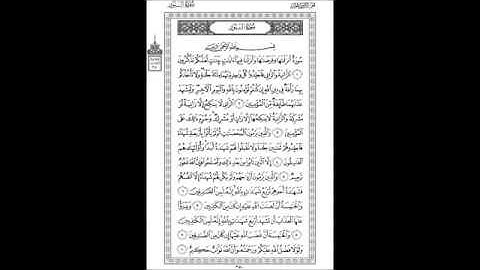 سُورَةُ النُّورِ
سُورَةُ النُّورِ
بِسْمِ ٱللَّهِ ٱلرَّحْمَٰنِ ٱلرَّحِيمِ
سُورَةٌ أَنزَلْنَٰهَا وَفَرَضْنَٰهَا وَأَنزَلْنَا فِيهَآ ءَايَٰتٍۭ بَيِّنَٰتٍ لَّعَلَّكُمْ تَذَكَّرُونَ
١ ٱلزَّانِيَةُ وَٱلزَّانِى فَٱجْلِدُوا۟ كُلَّ وَٰحِدٍ مِّنْهُمَا مِا۟ئَةَ جَلْدَةٍ وَلَا تَأْخُذْكُم
بِهِمَا رَأْفَةٌ فِى دِينِ ٱللَّهِ إِن كُنتُمْ تُؤْمِنُونَ بِٱللَّهِ وَٱلْيَوْمِ ٱلْءَاخِرِ وَلْيَشْهَدْ
عَذَابَهُمَا طَآئِفَةٌ مِّنَ ٱلْمُؤْمِنِينَ ٢ ٱلزَّانِى لَا يَنكِحُ إِلَّا زَانِيَةً أَوْ
مُشْرِكَةً وَٱلزَّانِيَةُ لَا يَنكِحُهَآ إِلَّا زَانٍ أَوْ مُشْرِكٌ وَحُرِّمَ ذَٰلِكَ عَلَى
ٱلْمُؤْمِنِينَ ٣ وَٱلَّذِينَ يَرْمُونَ ٱلْمُحْصَنَٰتِ ثُمَّ لَمْ يَأْتُوا۟ بِأَرْبَعَةِ شُهَدَآءَ
فَٱجْلِدُوهُمْ ثَمَٰنِينَ جَلْدَةً وَلَا تَقْبَلُوا۟ لَهُمْ شَهَٰدَةً أَبَدًا وَأُو۟لَٰٓئِكَ هُمُ
ٱلْفَٰسِقُونَ ٤ إِلَّا ٱلَّذِينَ تَابُوا۟ مِنۢ بَعْدِ ذَٰلِكَ وَأَصْلَحُوا۟ فَإِنَّ ٱللَّهَ غَفُورٌ
رَّحِيمٌ ٥ وَٱلَّذِينَ يَرْمُونَ أَزْوَٰجَهُمْ وَلَمْ يَكُن لَّهُمْ شُهَدَآءُ إِلَّآ أَنفُسُهُمْ
فَشَهَٰدَةُ أَحَدِهِمْ أَرْبَعُ شَهَٰدَٰتٍۭ بِٱللَّهِ إِنَّهُۥ لَمِنَ ٱلصَّٰدِقِينَ ٦
وَٱلْخَٰمِسَةُ أَنَّ لَعْنَتَ ٱللَّهِ عَلَيْهِ إِن كَانَ مِنَ ٱلْكَٰذِبِينَ ٧ وَيَدْرَؤُا۟
عَنْهَا ٱلْعَذَابَ أَن تَشْهَدَ أَرْبَعَ شَهَٰدَٰتٍۭ بِٱللَّهِ إِنَّهُۥ لَمِنَ ٱلْكَٰذِبِينَ ٨
وَٱلْخَٰمِسَةَ أَنَّ غَضَبَ ٱللَّهِ عَلَيْهَآ إِن كَانَ مِنَ ٱلصَّٰدِقِينَ ٩
وَلَوْلَا فَضْلُ ٱللَّهِ عَلَيْكُمْ وَرَحْمَتُهُۥ وَأَنَّ ٱللَّهَ تَوَّابٌ حَكِيمٌ ١٠